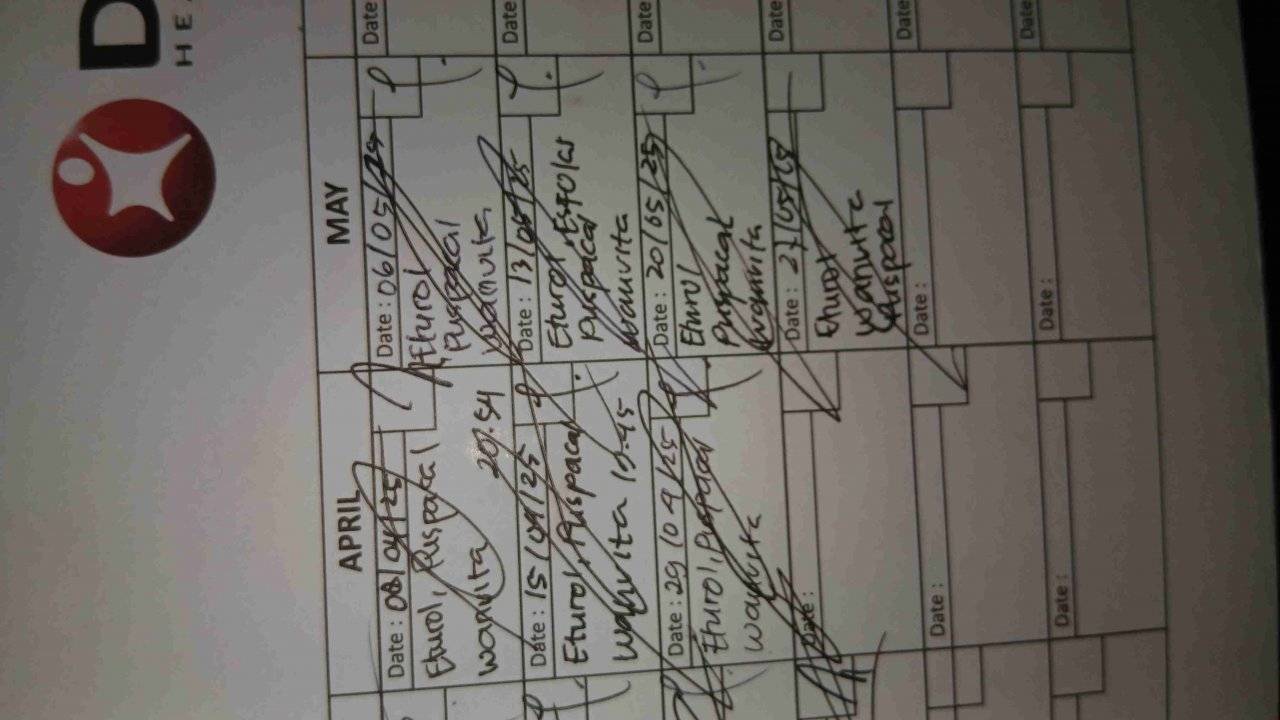 D
HEA
APRIL
Date : 08/04/25
Eturol, Puspacal
wanvita
20.54
Date : 15/04/25
Eturol, Puspacal
Wanvita 19.45
Date : 29/04/25
Eturol, Puspacal
Wanvita
Date :
Date :
Date :
MAY
Date : 06/05/25
Eturol
Puspacal
Wanvita
Date : 13/05/25
Eturol, Esfolar
Puspacal
Wanvita
Date : 20/05/25
Eturol
Puspacal
Wanvita
Date : 27/05/25
Eturol
Wanvita
Puspacal
Date :
Date :
Date
Date
Date
Date
Date
Date